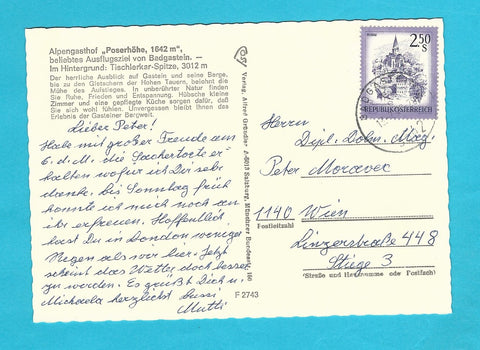 Alpengasthof „Poserhöhe, 1642 m",
beliebtes Ausflugsziel von Badgastein. —
Im Hintergrund: Tischlerkar-Spitze, 3012 m
Der herrliche Ausblick auf Gastein und seine Berge,
bis zu den Gletschern der Hohen Tauern, belohnt die
Mühe des Aufstieges. In unberührter Natur finden
Sie Ruhe, Frieden und Entspannung. Hübsche kleine
Zimmer und eine gepflegte Küche sorgen dafür, daß
Sie sich wohl fühlen. Unvergessen bleibt Ihnen das
Erlebnis der Gasteiner Bergwelt.
Lieber Peter!
Habe mit großer Freude am
6. d. M. die Sachertorte er-
halten wofür ich Dir sehr
danke. Bis Sonntag früh
konnte ich mich noch an
ihr erfreuen. Hoffentlich
hast Du in London weniger
Regen als wir hier. Jetzt
scheint das Wetter doch besser
zu werden. Es grüßt Dich u.
Michaela herzlichst Bussi
Mutti
F 2743
Verlag A-5013 Salzburg, Münchner Bundesstr. 160
2.50
S
REPUBLIK ÖSTERREICH
Herrn
Dipl. Dolm. Mag.
Peter Moravec
1140 Wien
Postleitzahl
Linzerstraße 448
Stiege 3
(Straße und Hausnummer oder Postfach)